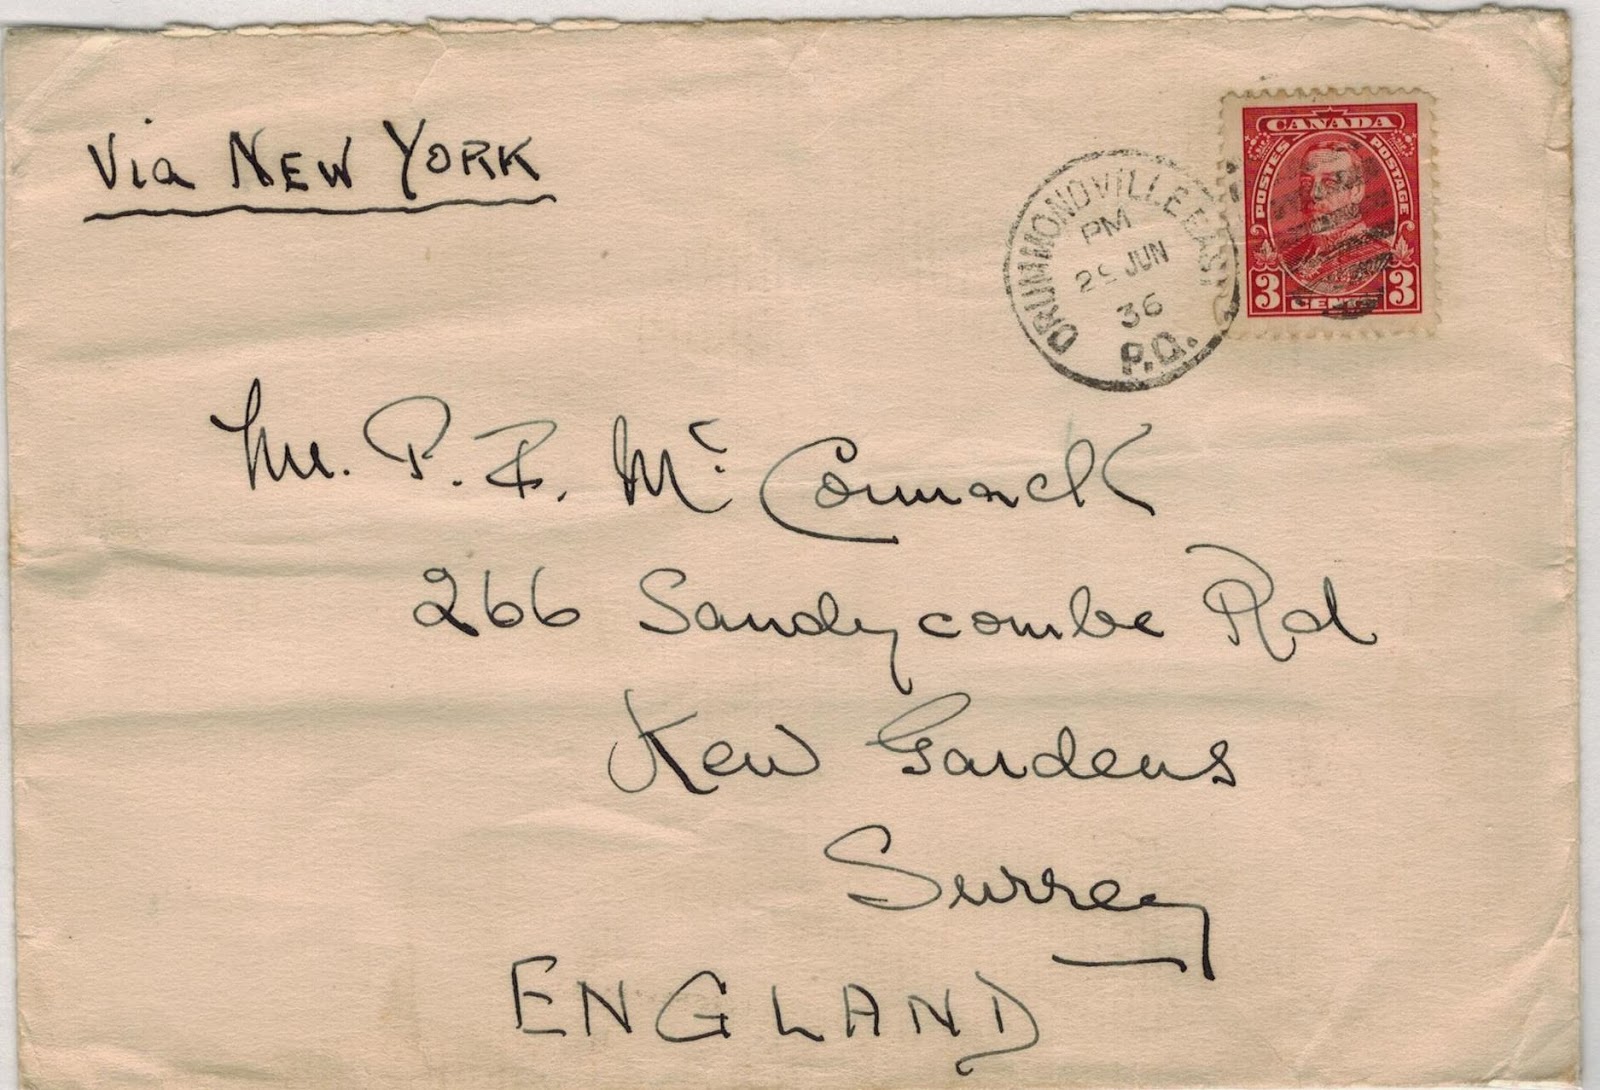 Via NEW YORK
CANADA
POSTES POSTAGE
3 CENTS 3
DRUMMONDVILLE EAST
PM
JUN
36
P.Q.
Mr. P. F. Mc Cormack
266 Sandycombe Rd
Kew Gardens
Surrey
ENGLAND